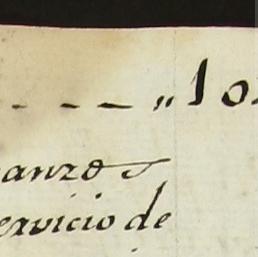 - - - - „ 10
anzos
ervicio de